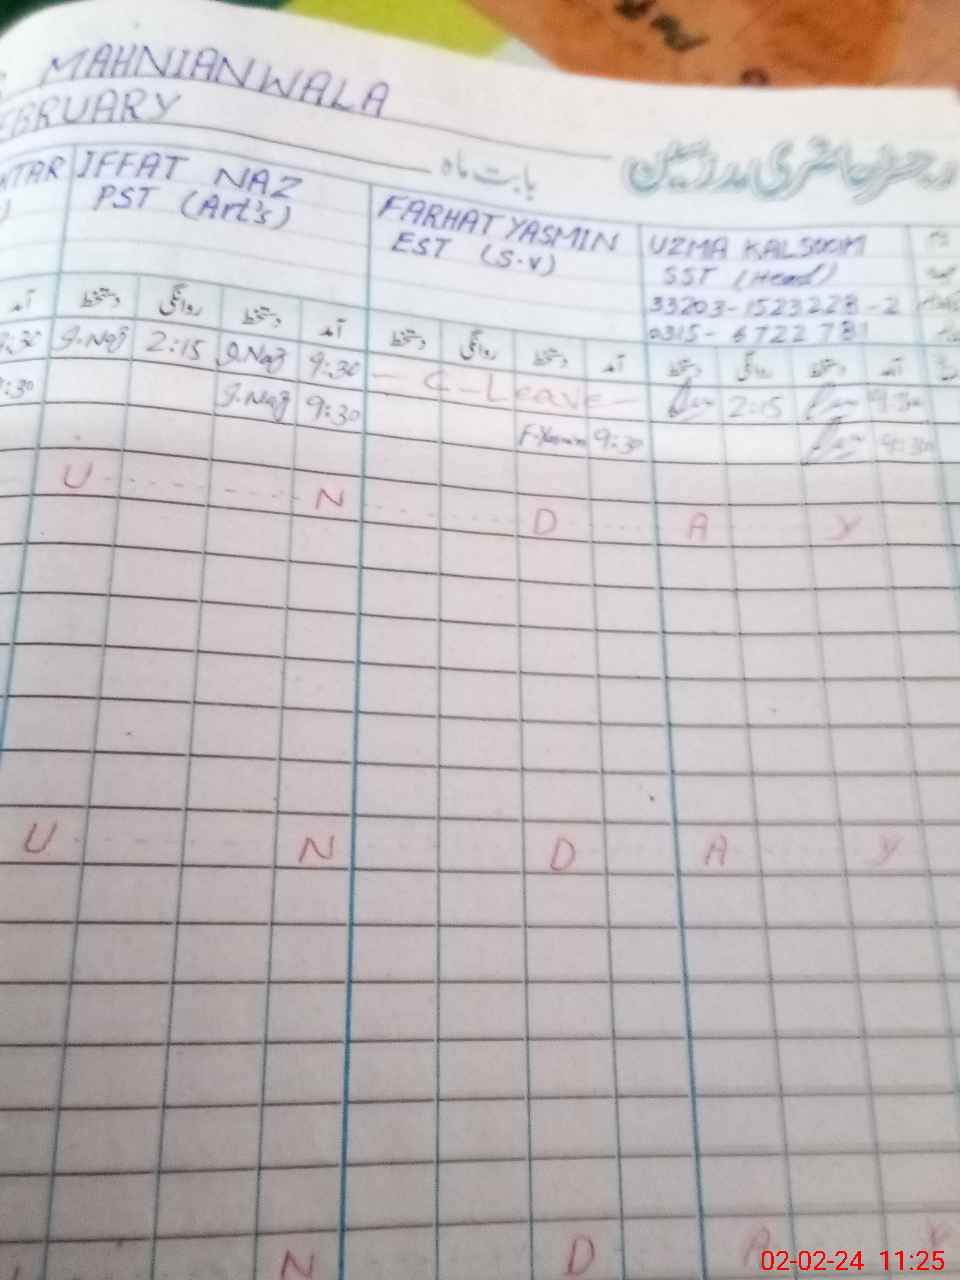 MAHNIANWALA
FEBRUARY
بابت ماہ
رجسٹر حاضری مدرسین
IFFAT NAZ
PST (Art's)
FARHAT YASMIN
EST (S.V)
UZMA KALSOOM
SST (Head)
33203-1523228-2
0315-6722781
آمد دستخط روانگی دستخط آمد دستخط روانگی دستخط آمد دستخط روانگی دستخط آمد
9:30 I.Naz 2:15 I.Naz 9:30 - C-Leave- 2:15 9:30
9:30 I.Naz 9:30 F.Yasmin 9:30 9:30
U N D A Y
U N D A Y
N D A Y
02-02-24 11:25